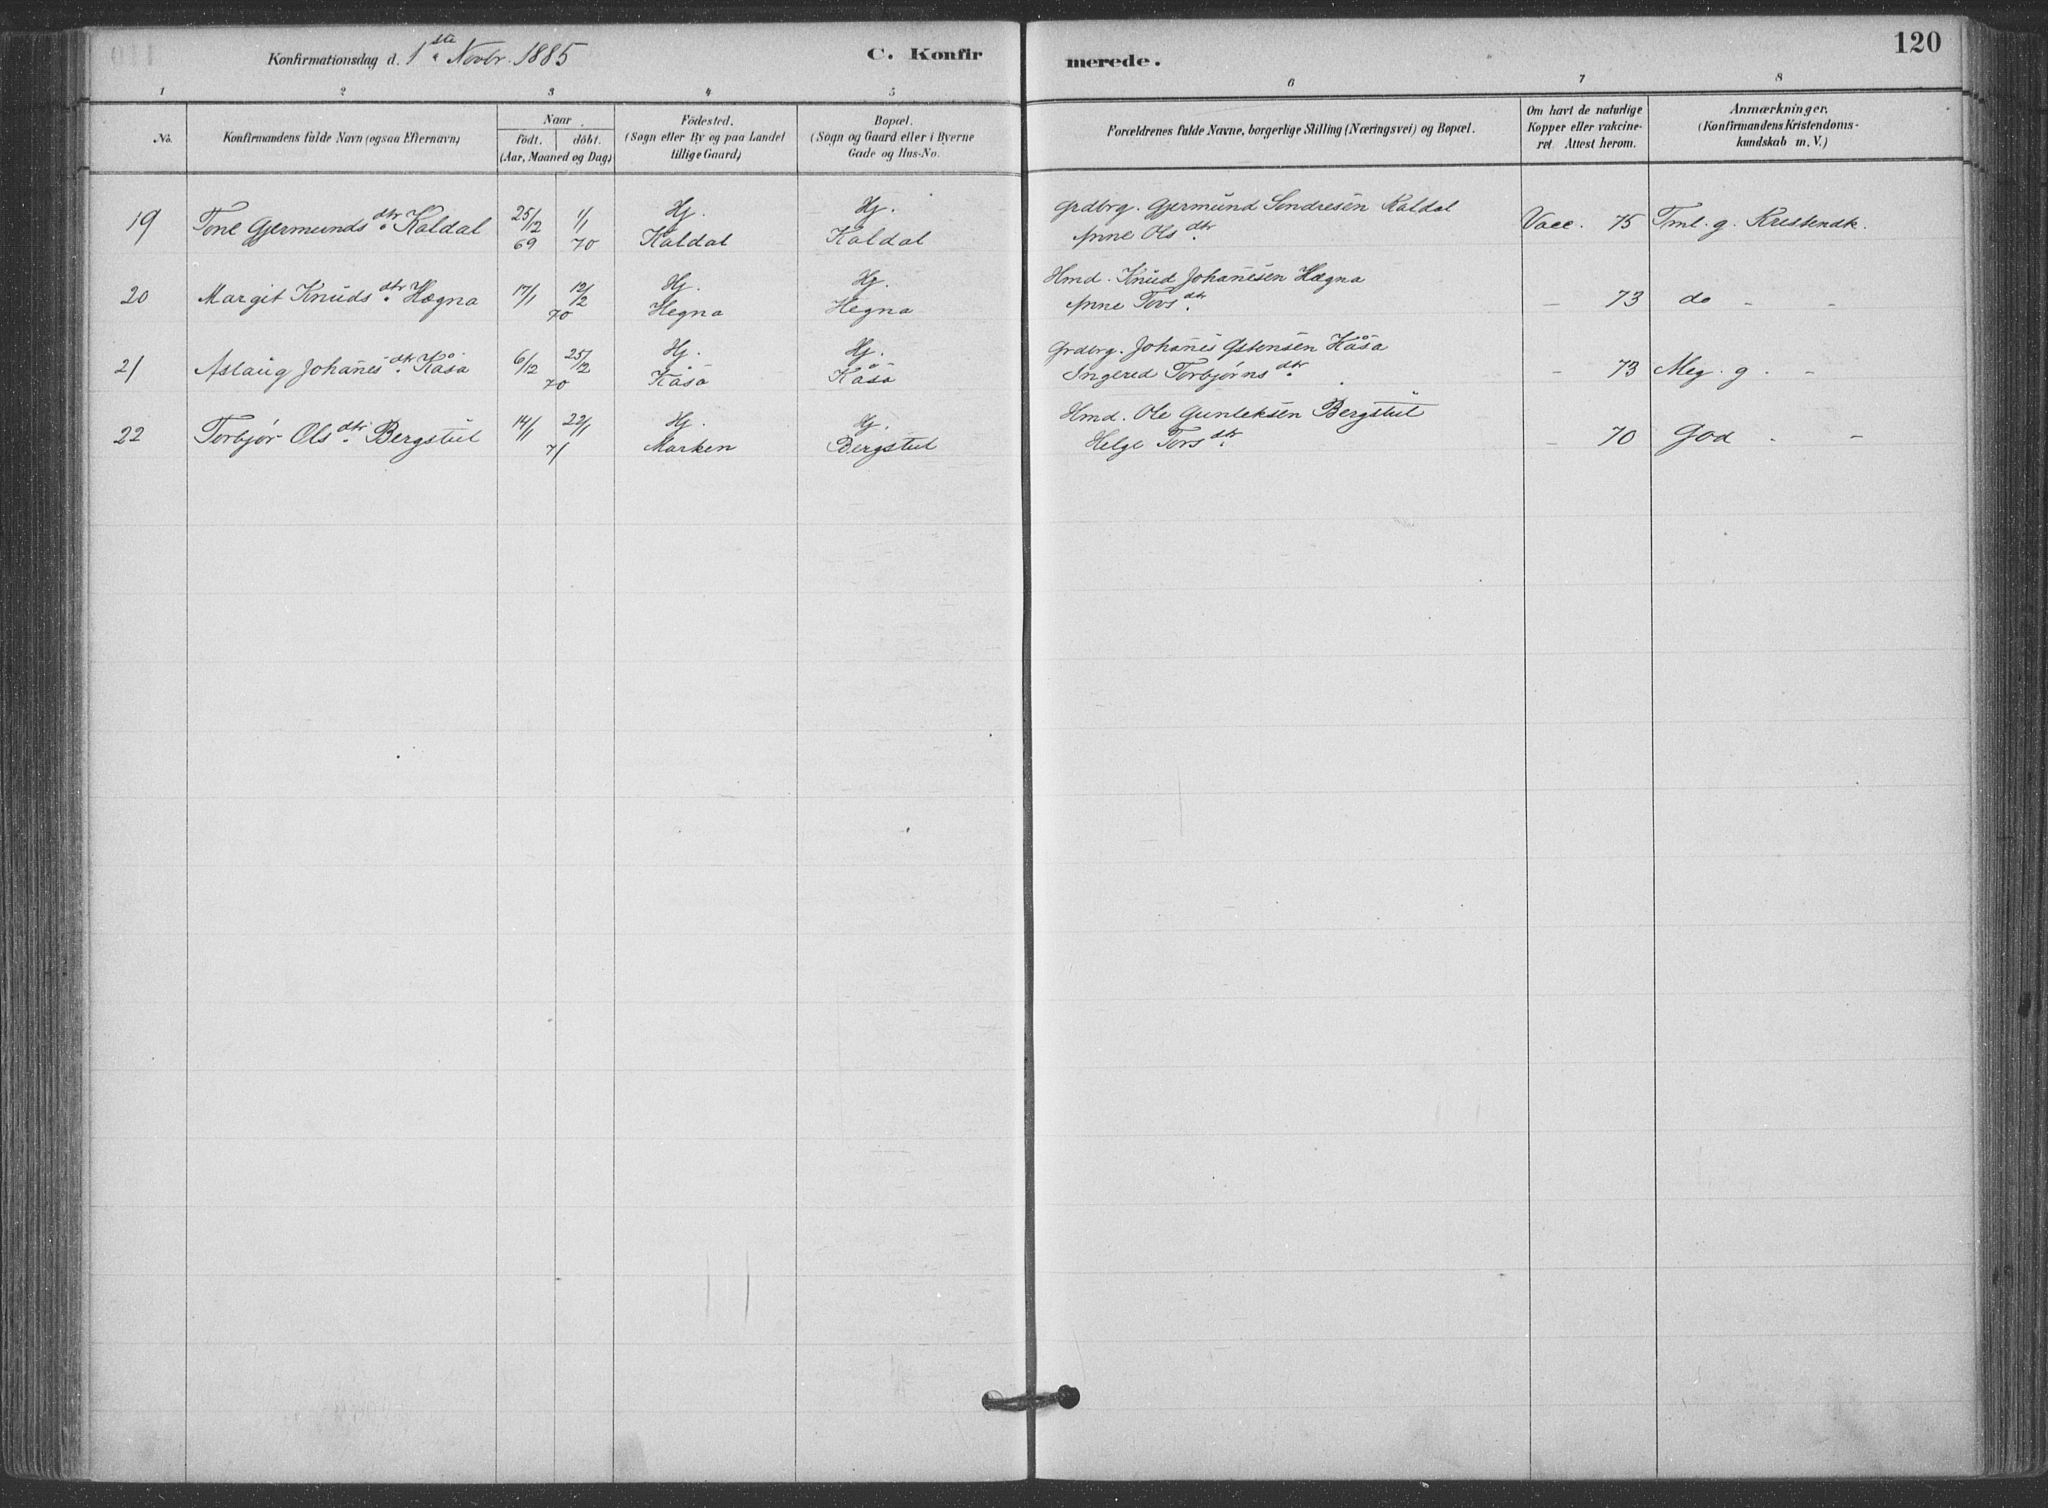 Konfirmationsdag d. 1ste Novbr. 1885 C. Konfirmerede. 120
1 2 3 4 5 6 7 8
No. Konfirmandens fulde Navn (ogsaa Efternavn) Naar født. døbt. (Aar, Maaned og Dag) Fødested. (Sogn eller By og paa Landet tillige Gaard) Bopæl. (Sogn og Gaard eller i Byerne Gade og Hus-No. Forældrenes fulde Navne, borgerlige Stilling (Næringsvei) og Bopæl. Om havt de naturlige Kopper eller vakcineret. Attest herom. Anmærkninger. (Konfirmandens Kristendomskundskab m. V.)
19 Tone Gjermundsdtr. Kaldal 25/12 69 1/1 70 Hj. Kaldal Hj. Kaldal Grdbrg. Gjermund Sondresen Kaldal
Anne Olsdtr. Vacc. 75 Tml. g. Kristendk.
20 Margit Knudsdtr. Hægna 17/1 12/2 70 Hj. Hegna Hj. Hegna Hmd. Knud Johanesen Hægna
Anne Tovsdtr. - 73 do - -
21 Aslaug Johanesdtr. Kåsa 6/12 25/12 70 Hj. Kåsa Hj. Kåsa Grdbrg. Johanes Østensen Kåsa
Ingerid Torbjørnsdtr. - 73 Meg. g. -
22 Torbjør Olsdtr. Bergstul 14/1 22/1 71 Hj. Marken Hj. Bergstul Hmd. Ole Gunleksen Bergstul
Helge Torsdtr. - 70 God - -